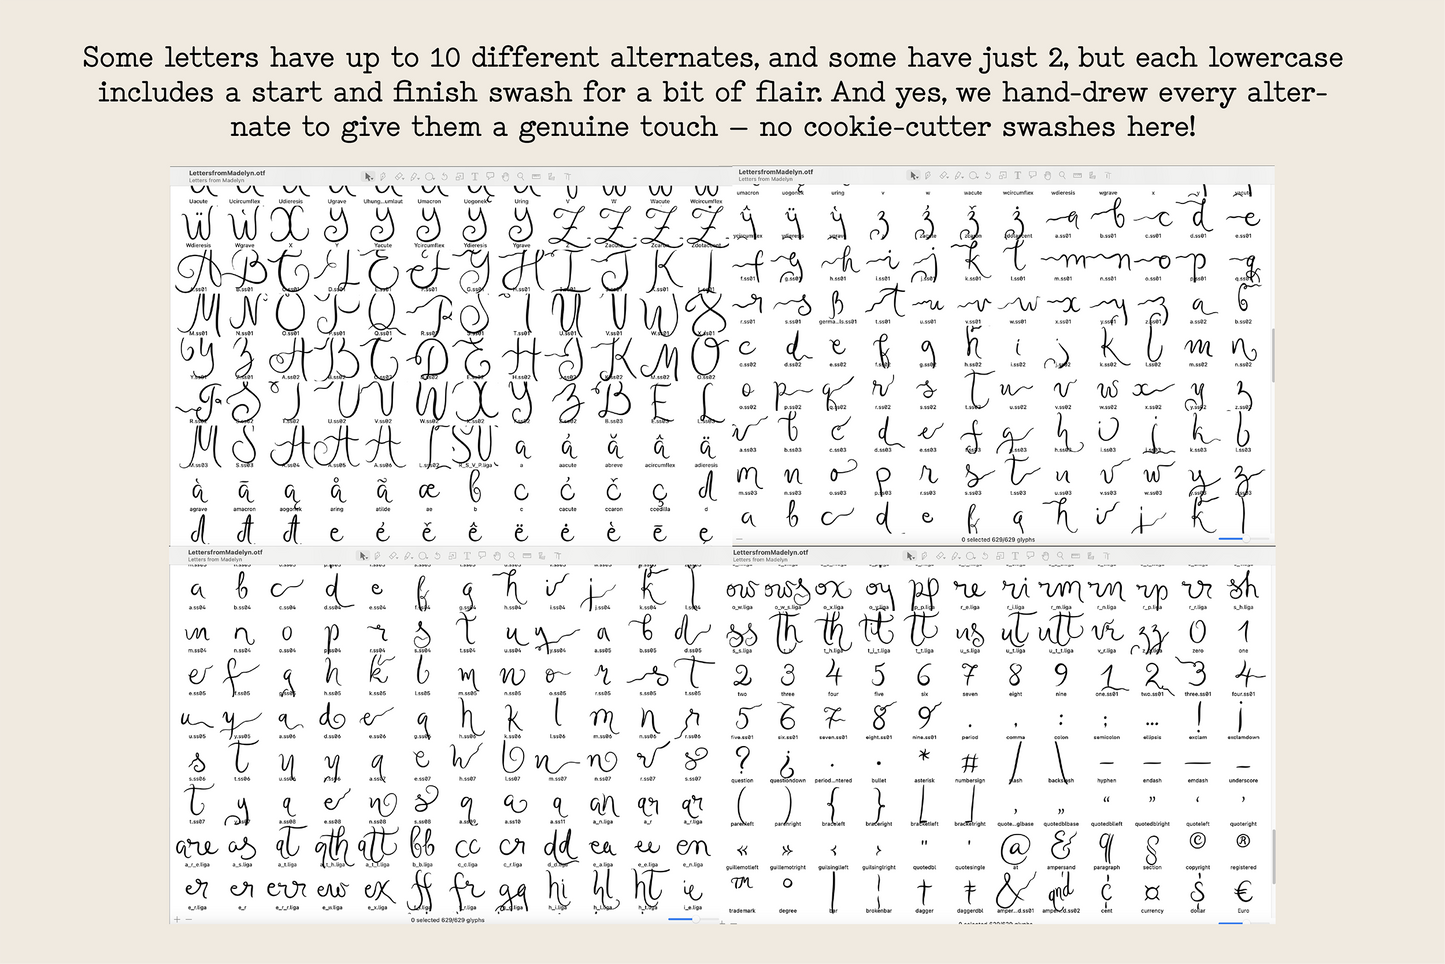 Some letters have up to 10 different alternates, and some have just 2, but each lowercase
includes a start and finish swash for a bit of flair. And yes, we hand-drew every alter-
nate to give them a genuine touch – no cookie-cutter swashes here!
LettersfromMadelyn.otf
Letters from Madelyn
Uacute Ucircumflex Udieresis Ugrave Uhung...umlaut Umacron Uogonek Uring V W Wacute Wcircumflex
Ẅ Ẁ X Y Ý Ŷ Ÿ Ỳ Z Ź Ž Ż
Wdieresis Wgrave X Y Yacute Ycircumflex Ydieresis Ygrave
A B C D E F G H I J K L
M N O P Q R S T U V W X
Y Z A B C D E H J K M O
R S T U V W X Y Z B E L
M S A A A L RSVP a á ă â ä
M.ss03 S.ss03 A.ss04 A.ss05 A.ss06 R_S_V_P.liga a aacute abreve acircumflex adieresis
à ā ą å ã æ b c ć č ç d
agrave amacron aogonek aring atilde ae b c cacute ccaron ccedilla d
LettersfromMadelyn.otf
Letters from Madelyn
umacron uogonek uring v w wacute wcircumflex wdieresis wgrave x y yacute
ŷ ÿ ỳ z ź ž ż a b c d e
a.ss01 b.ss01 c.ss01 d.ss01 e.ss01
f g h i j k t m n o p q
r s ß t u v w x y z a b
r.ss01 s.ss01 germa...ls.ss01 t.ss01 u.ss01 v.ss01 w.ss01 x.ss01 y.ss01 z.ss01 a.ss02 b.ss02
c d e f g h i j k l m n
c.ss02 d.ss02 e.ss02 f.ss02 g.ss02 h.ss02 i.ss02 j.ss02 k.ss02 l.ss02 m.ss02 n.ss02
o p q r s t u v w x y z
o.ss02 p.ss02 q.ss02 r.ss02 s.ss02 t.ss02 u.ss02 v.ss02 w.ss02 x.ss02 y.ss02 z.ss02
a b c d e f g h i j k l
a.ss03 b.ss03 c.ss03 d.ss03 e.ss03 f.ss03 g.ss03 h.ss03 i.ss03 j.ss03 k.ss03 l.ss03
m n o p r s t u v w y z
m.ss03 n.ss03 o.ss03 p.ss03 r.ss03 s.ss03 t.ss03 u.ss03 v.ss03 w.ss03 y.ss03 z.ss03
a b c d e f g h i j k l
0 selected 629/629 glyphs
LettersfromMadelyn.otf
Letters from Madelyn
a b c d e f g h i j k l
a.ss04 b.ss04 c.ss04 d.ss04 e.ss04 f.ss04 g.ss04 h.ss04 i.ss04 j.ss04 k.ss04 l.ss04
m n o p r s t u y a b d
m.ss04 n.ss04 o.ss04 p.ss04 r.ss04 s.ss04 t.ss04 u.ss04 y.ss04 a.ss05 b.ss05 d.ss05
e f g h k l m n o r s t
e.ss05 f.ss05 g.ss05 h.ss05 k.ss05 l.ss05 m.ss05 n.ss05 o.ss05 r.ss05 s.ss05 t.ss05
u y a d e g h k l m n r
u.ss05 y.ss05 a.ss06 d.ss06 e.ss06 g.ss06 h.ss06 k.ss06 l.ss06 m.ss06 n.ss06 r.ss06
s t u y a e h l m n r s
s.ss06 t.ss06 u.ss06 y.ss06 a.ss07 e.ss07 h.ss07 l.ss07 m.ss07 n.ss07 r.ss07 s.ss07
t y a e n s a a a an ar ar
t.ss07 y.ss07 a.ss08 e.ss08 n.ss08 s.ss08 a.ss09 a.ss10 a.ss11 a_n.liga a_r a_r.liga
are as at ath att bb cc cr dd ea ee en
a_r_e.liga a_s.liga a_t.liga a_t_h.liga a_t_t.liga b_b.liga c_c.liga c_r.liga d_d.liga e_a.liga e_e.liga e_n.liga
er er err ew ex ff fr gg hi hl ht ie
e_r.liga e_r e_r_r.liga e_w.liga e_x.liga f_f.liga f_r.liga g_g.liga h_i.liga h_l.liga h_t.liga i_e.liga
0 selected 629/629 glyphs
LettersfromMadelyn.otf
Letters from Madelyn
ow ows ox oy pp re ri rm rn rp rr sh
o_w.liga o_w_s.liga o_x.liga o_y.liga p_p.liga r_e.liga r_i.liga r_m.liga r_n.liga r_p.liga r_r.liga s_h.liga
ss th th tit tt us ut utt vr zz 0 1
s_s.liga t_h t_h.liga t_i_t.liga t_t.liga u_s.liga u_t.liga u_t_t.liga v_r.liga z_z.liga zero one
2 3 4 5 6 7 8 9 1 2 3 4
two three four five six seven eight nine one.ss01 two.ss01 three.ss01 four.ss01
5 6 7 8 9 . , : ; … ! ¡
five.ss01 six.ss01 seven.ss01 eight.ss01 nine.ss01 period comma colon semicolon ellipsis exclam exclamdown
? ¿ · • * # / \ - – — _
question questiondown period...ntered bullet asterisk numbersign slash backslash hyphen endash emdash underscore
( ) { } [ ] ‚ „ “ ” ‘ ’
parenleft parenright braceleft braceright bracketleft bracketright quote...glbase quotedblbase quotedblleft quotedblright quoteleft quoteright
« » ‹ › " ' @ & ¶ § © ®
guillemotleft guillemotright guilsinglleft guilsinglright quotedbl quotesingle at ampersand paragraph section copyright registered
™ ° | ¦ † ‡ & and ¢ ¤ $ €
trademark degree bar brokenbar dagger daggerdbl amper...d.ss01 amper...d.ss02 cent currency dollar Euro
0 selected 629/629 glyphs